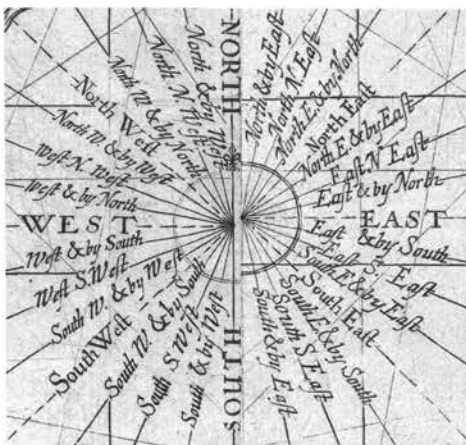 NORTH
North & by East
North N. East
North E. & by North
North East
North E. & by East
East N. East
East & by North
EAST
East & by South
East S. East
South E. & by East
South East
South E. & by South
South S. East
South & by East
SOUTH
South & by West
South S. West
South W. & by South
South West
South W. & by West
West S. West
West & by South
WEST
West & by North
West N. West
North W. & by West
North West
North W. & by North
North N. West
North & by West